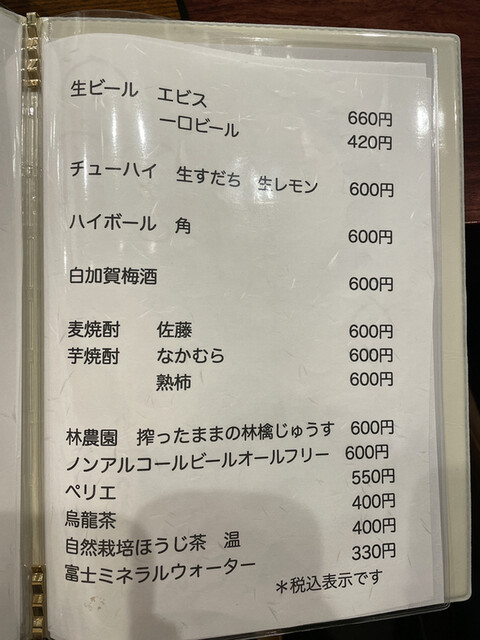 生ビール エビス 660円
一口ビール 420円
チューハイ 生すだち 生レモン 600円
ハイボール 角 600円
白加賀梅酒 600円
麦焼酎 佐藤 600円
芋焼酎 なかむら 600円
熟柿 600円
林農園 搾ったままの林檎じゅうす 600円
ノンアルコールビールオールフリー 600円
ペリエ 550円
烏龍茶 400円
自然栽培ほうじ茶 温 400円
富士ミネラルウォーター 330円
＊税込表示です